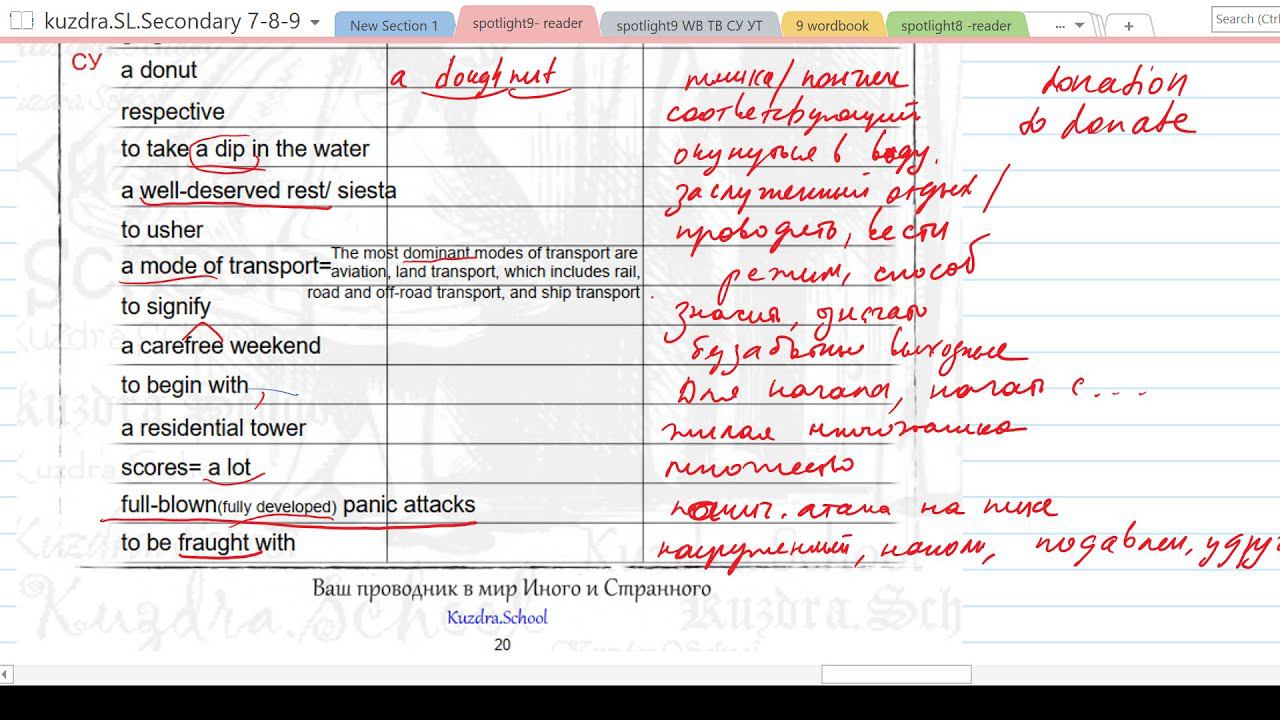 kuzdra.SL.Secondary 7-8-9
New Section 1
spotlight9- reader
spotlight9 WB ТВ СУ УТ
9 wordbook
spotlight8 -reader
...
+
Search (Ctrl
СУ
a donut a doughnut пышка/ пончик
donation
respective соответствующий
to donate
to take a dip in the water окунуться в воду.
a well-deserved rest/ siesta заслуженный отдых /
to usher проводить, вести
a mode of transport= The most dominant modes of transport are
aviation, land transport, which includes rail,
road and off-road transport, and ship transport
режим, способ
to signify значить,
a carefree weekend беззаботные выходные
to begin with, Для начала, начать с...
a residential tower жилая
scores= a lot множество
full-blown(fully developed) panic attacks панич. атака на пике
to be fraught with нагруженный, подавлен,
Ваш проводник в мир Иного и Странного
Kuzdra.School
20